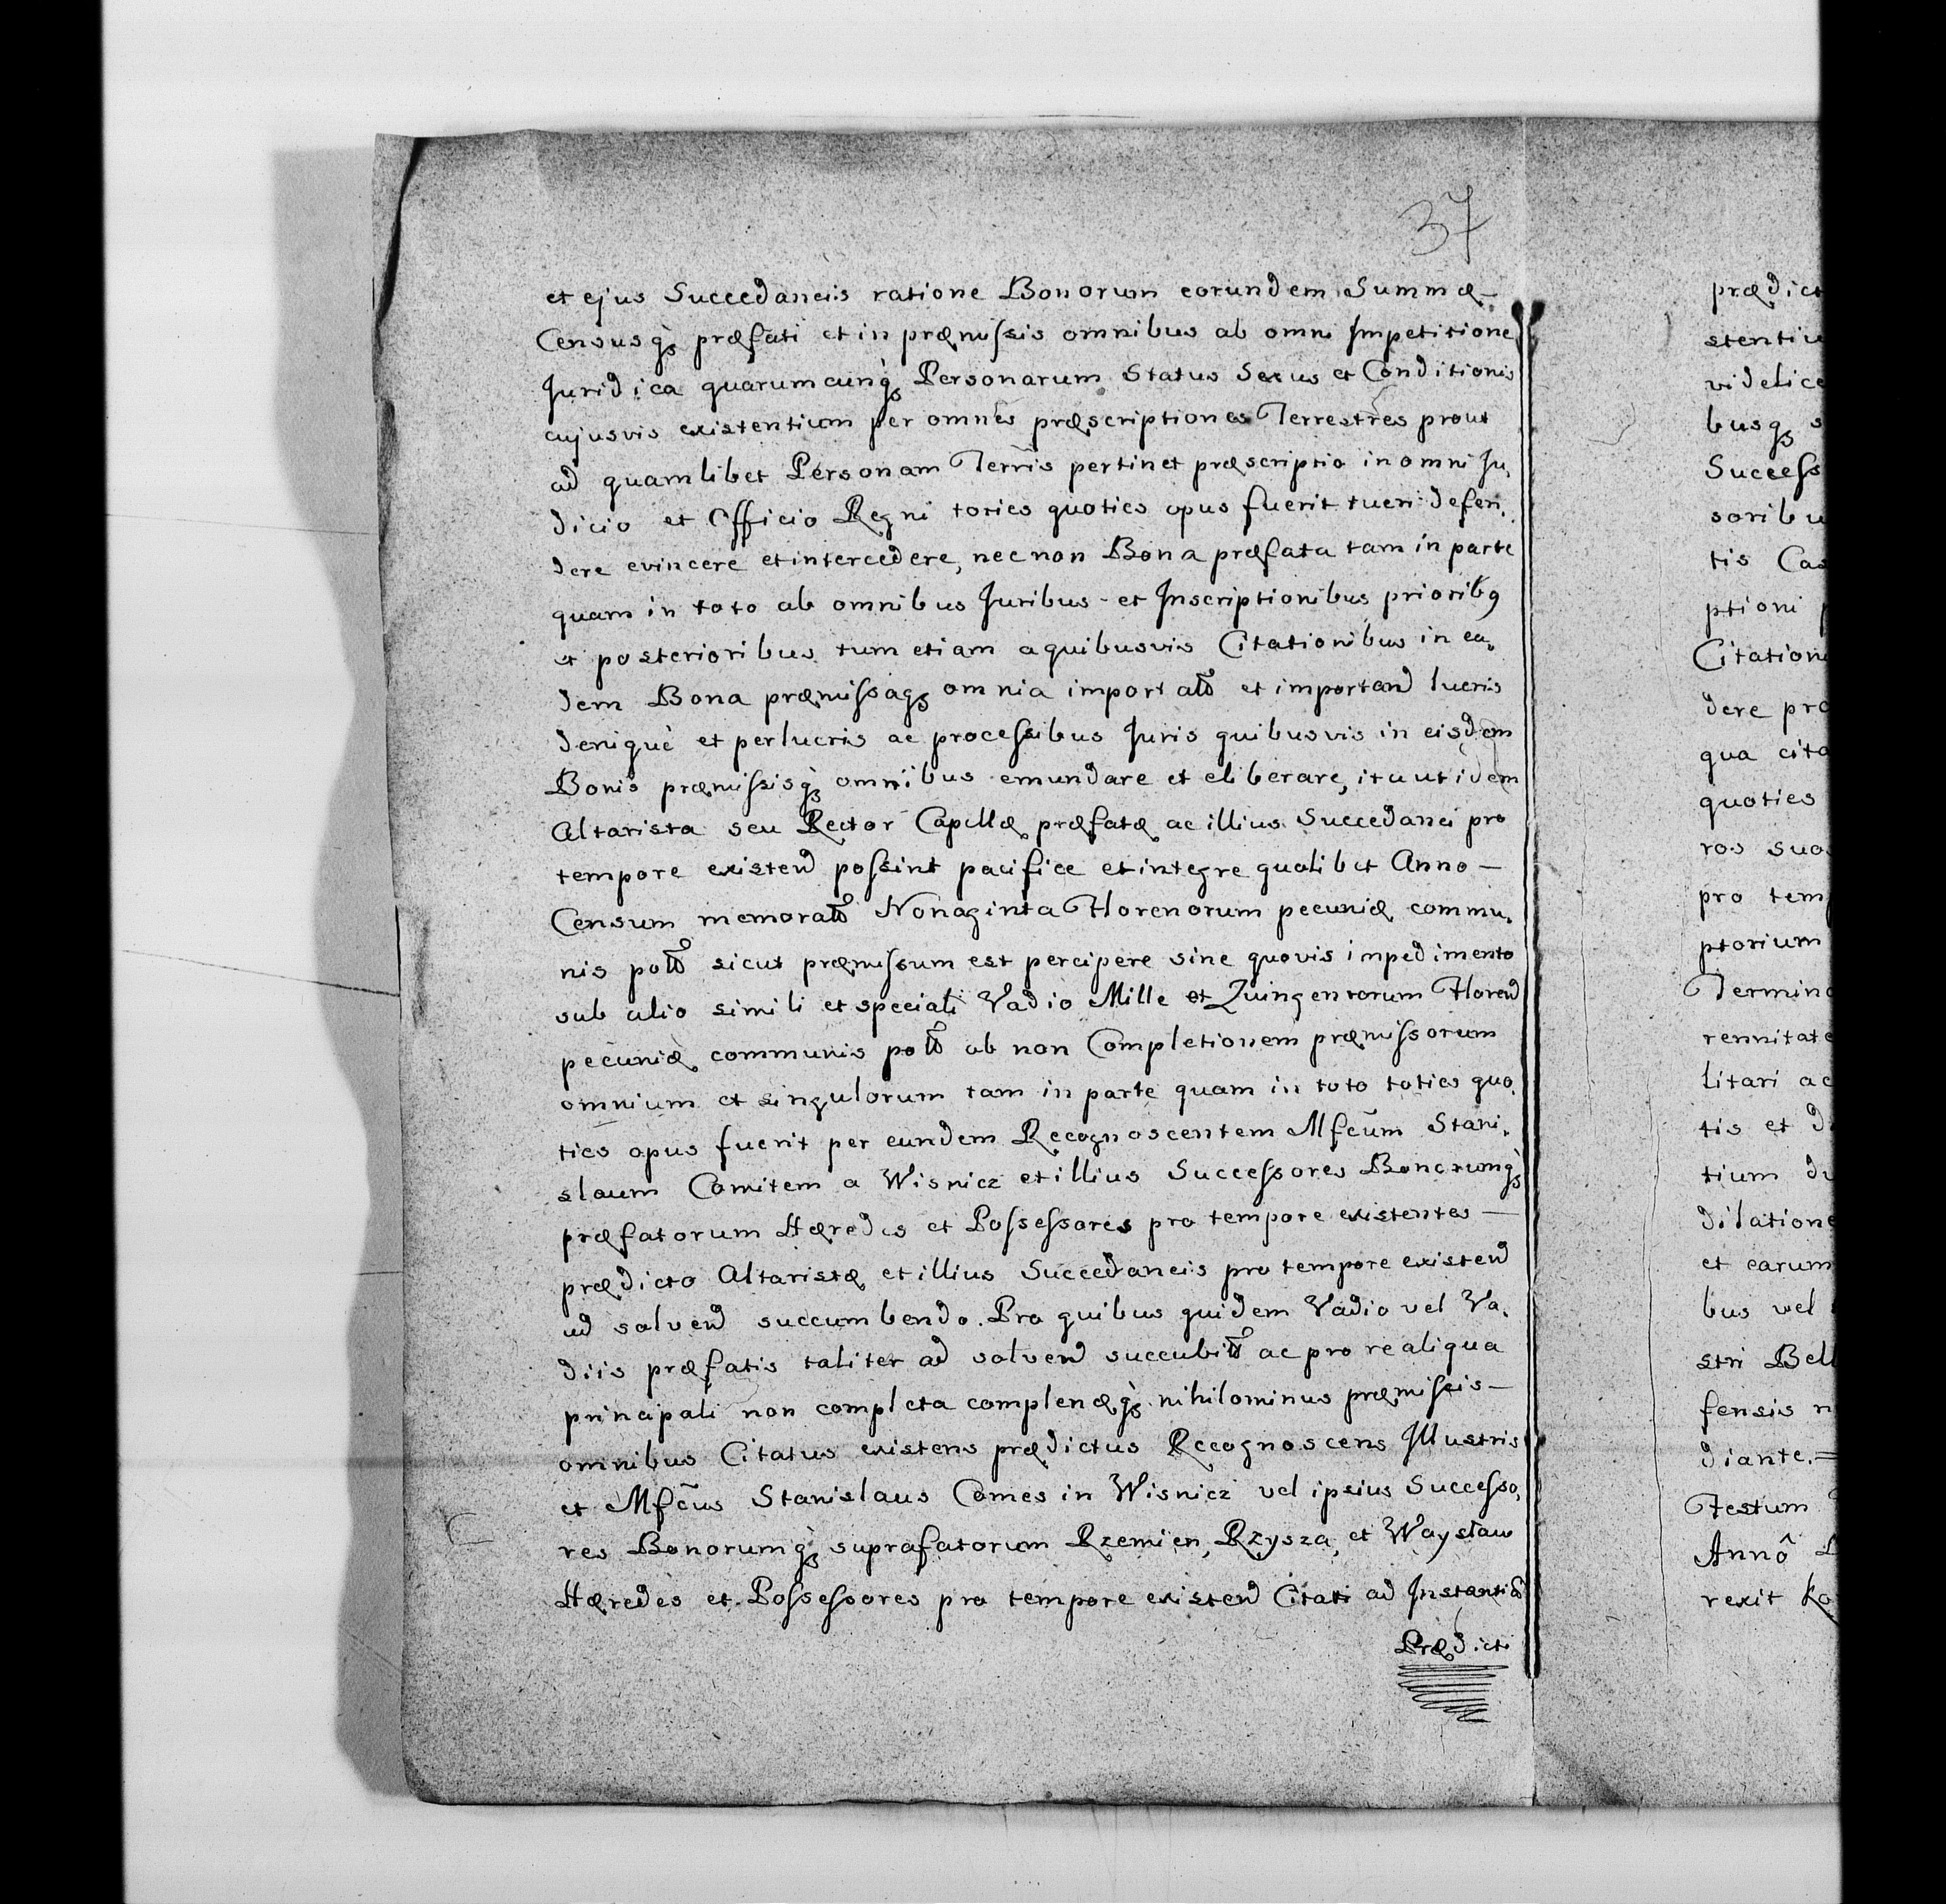 37
et ejus Succedaneis ratione Bonorum eorundem Summæ –
Censusq3 præfati et in præmissis omnibus ab omni Impetitione
Juridica quarumcunq3 Personarum Status Sexus et Conditionis
cujusvis existentium per omnes præscriptiones Terrestres prout
ad quamlibet Personam Terris pertinet præscriptio in omni Ju,
dicio et Officio Regni toties quoties opus fuerit tueri defen,
dere evincere et intercedere, nec non Bona præfata tam in parte
quam in toto ab omnibus Juribus et Inscriptionibus prioribꝰ
et posterioribus tum etiam a quibusvis Citationibus in ea,
dem Bona præmissaq3 omnia importatō et importand lucris
deniquè et perlucris ac processibus Juris quibusvis in eisdem
Bonis præmissisq3 omnibus emundare et eliberare, ita ut idem
Altarista seu Rector Capellæ præfatæ ac illius Succedanei pro
tempore existend possint pacifice et integre qualibet Anno –
Censum memoratō Nonaginta Florenorum pecuniæ commu,
nis potō sicut præmissum est percipere sine quovis inpedimento
sub alio simili et speciali Vadio Mille et Quingentorum Florend
pecuniæ communis potō ob non Completionem præmissorum
omnium et singulorum tam in parte quam in toto toties quo,
ties opus fuerit per eundem Recognoscentem Mfcūm Stani,
slaum Comitem a Wisnicz et illius Successores Bonorumq3
præfatorum Hæredes et Possessores pro tempore existentes –
prædicto Altaristæ et illius Succedaneis pro tempore existend
ad solvend succumbendo. Pro quibus quidem Vadio vel Va,
diis præfatis taliter ad solvend succubitō ac pro re aliqua
principali non completa complendæq3 nihilominus præmissis –
omnibus Citatus existens prædictus Recognoscens Illustris
et Mfcūs Stanislaus Comes in Wisnicz vel ipsius Successo,
res Bonorumq3 suprafatorum Rzemien, Rzysza, et Waystaw
Hæredes et Possessores pro tempore existend Citati ad Instantiā
Prædicti
prædict
stentiu
videlice
busq3 s
Success
soribu
tis Cas
ptioni
Citation
dere pro
qua cita
quoties
ros suo
pro tem
ptorium
Termino
rennitate
litari ac
tis et d
tium du
dilatione
et earum
bus vel
stri Bell
fensis n
diante. =
Festum
Annô
rexit Ko